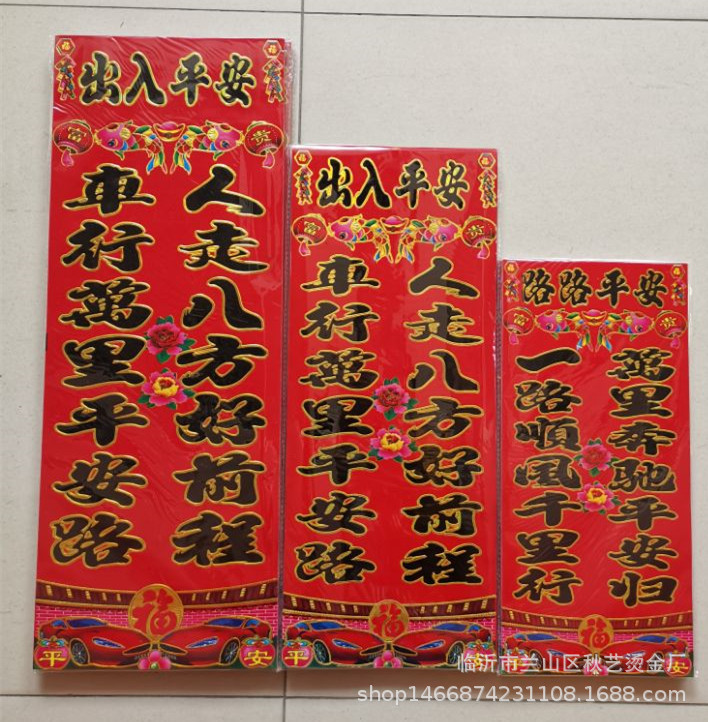 福
出入平安
福
富
贵
車行萬里平安路
人走八方好前程
福
平
安
福
出入平安
福
富
贵
車行萬里平安路
人走八方好前程
福
平
安
福
路路平安
福
富
贵
一路順風千里行
萬里奔馳平安归
福
平
安
临沂市兰山区秋艺烫金厂
shop1466874231108.1688.com